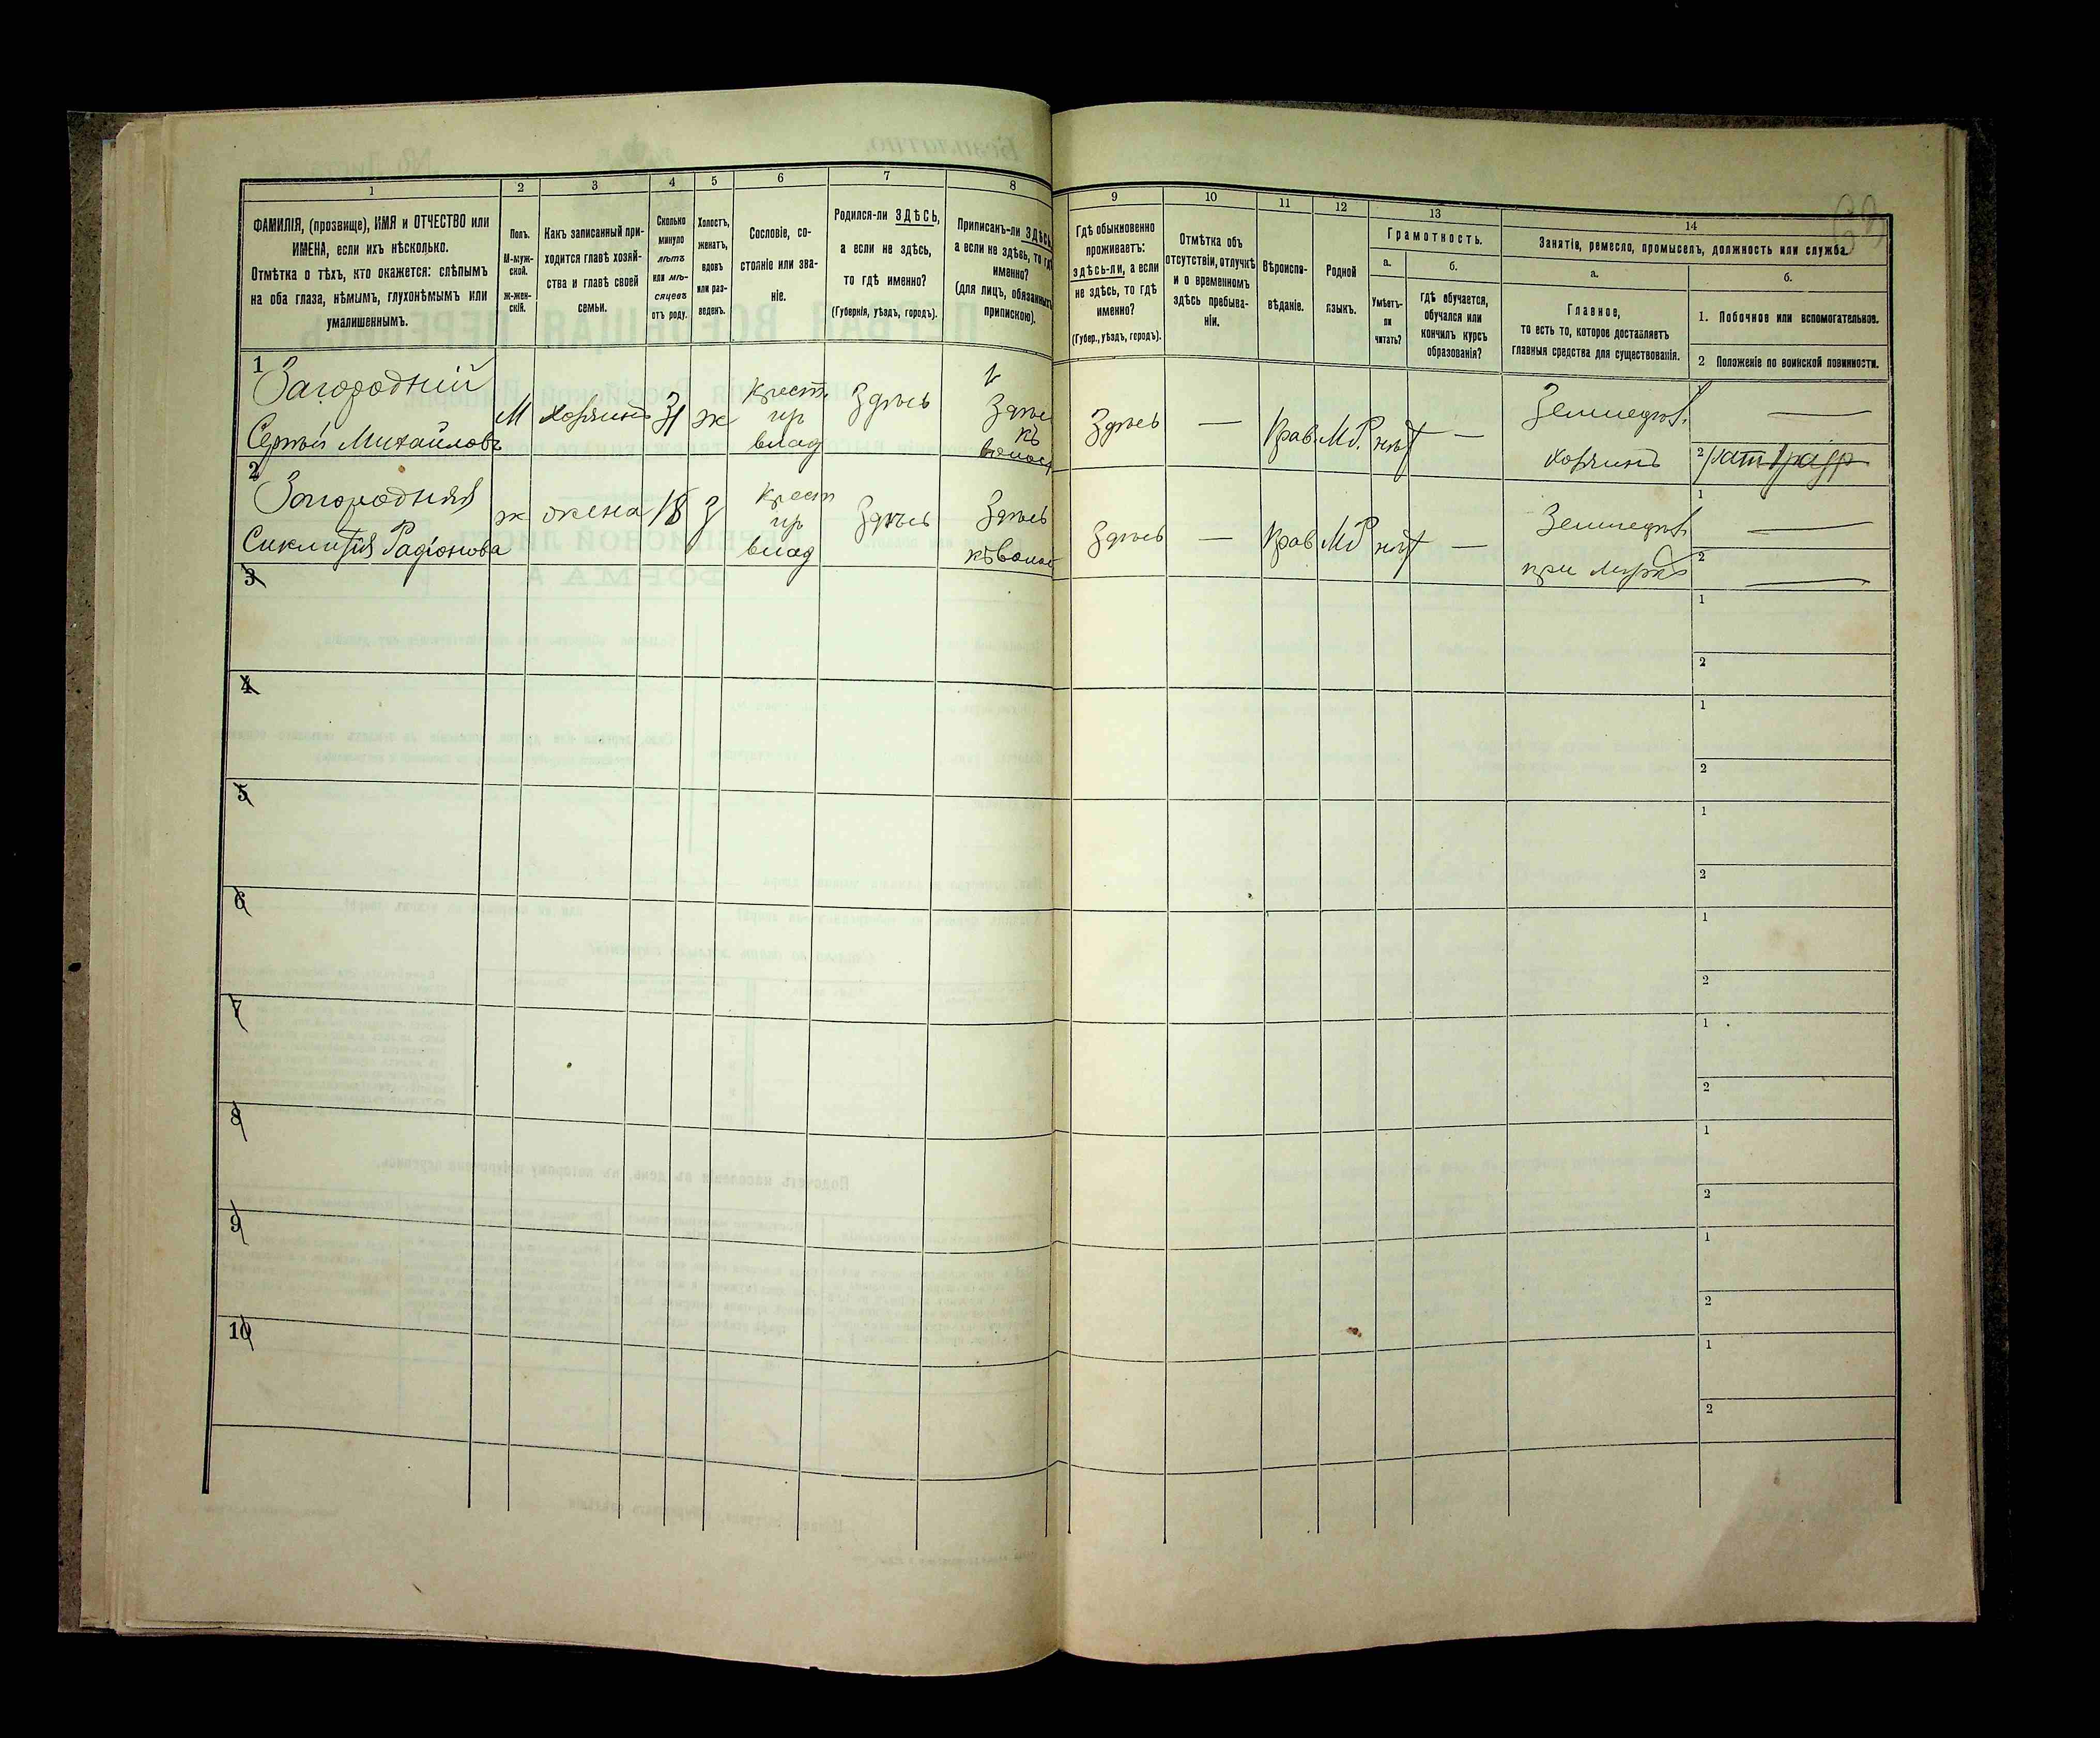 Безплатно.
1
2
3
4
5
6
7
8
9
10
11
12
13
14
ФАМИЛІЯ, (прозвище), ИМЯ и ОТЧЕСТВО или
ИМЕНА, если ихъ нѣсколько.
Отмѣтка о тѣхъ, кто окажется: слѣпымъ
на оба глаза, нѣмымъ, глухонѣмымъ или
умалишеннымъ.
Полъ.
М-муж-
ской.
ж-жен-
скій.
Какъ записанный при-
ходится главѣ хозяй-
ства и главѣ своей
семьи.
Сколько
минуло
лѣтъ
или мѣ-
сяцевъ
отъ роду.
Холостъ,
женатъ,
вдовъ
или раз-
веденъ.
Сословіе, со-
стояніе или зва-
ніе.
Родился-ли ЗДѢСЬ,
а если не здѣсь,
то гдѣ именно?
(Губернія, уѣздъ, городъ).
Приписанъ-ли ЗДѢСЬ,
а если не здѣсь, то гдѣ
именно?
(для лицъ, обязанныхъ
припискою).
Гдѣ обыкновенно
проживаетъ:
здѣсь-ли, а если
не здѣсь, то гдѣ
именно?
(Губер., уѣздъ, городъ).
Отмѣтка объ
отсутствіи, отлучкѣ
и о временномъ
здѣсь пребыва-
ніи.
Вѣроиспо-
вѣданіе.
Родной
языкъ.
Грамотность.
а.
Умѣетъ-
ли
читать?
б.
Гдѣ обучается,
обучался или
кончилъ курсъ
образованія?
Занятія, ремесло, промыселъ, должность или служба.
а.
Главное,
то есть то, которое доставляетъ
главныя средства для существованія.
б.
1. Побочное или вспомогательное.
2 Положеніе по воинской повинности.
1
Загородній
Сергѣй Михайловъ
М
Хозяинъ
31
ж
Крест
пр
влад
Здѣсь
Здѣсь
къ
волос
Здѣсь
—
Прав.
М.Р.
нѣт
—
Земледѣл.
хозяинъ
—
2
2
Загородняя
Синклитія Радіонова
ж
жена
18
З
Крест
пр
влад
Здѣсь
Здѣсь
къ волос
Здѣсь
—
Прав
МР
нѣт
—
Земледѣл.
при мужѣ
1
—
2
—
3
1
2
4
1
2
5
1
2
6
1
2
7
1
2
8
1
2
9
1
2
10
1
2